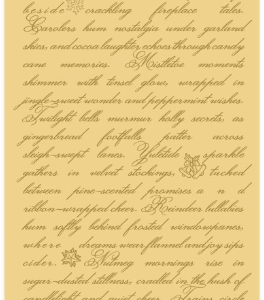 beside crackling fireplace tales.
Carolers hum nostalgia under garland
skies, and cocoa laughter echoes through candy
cane memories. Mistletoe moments
shimmer with tinsel glow, wrapped in
jingle-sweet wonder and peppermint wishes.
Twilight bells murmur holly secrets, as
gingerbread footfalls patter across
sleigh-swept lanes. Yuletide sparkle
gathers in velvet stockings, tucked
between pine-scented promises and
ribbon-wrapped cheer. Reindeer lullabies
hum softly behind frosted windowpanes,
where dreams wear flannel and joy sips
cider. Nutmeg mornings rise in
sugar-dusted stillness, cradled in the hush of
candlelight and quiet cheer.